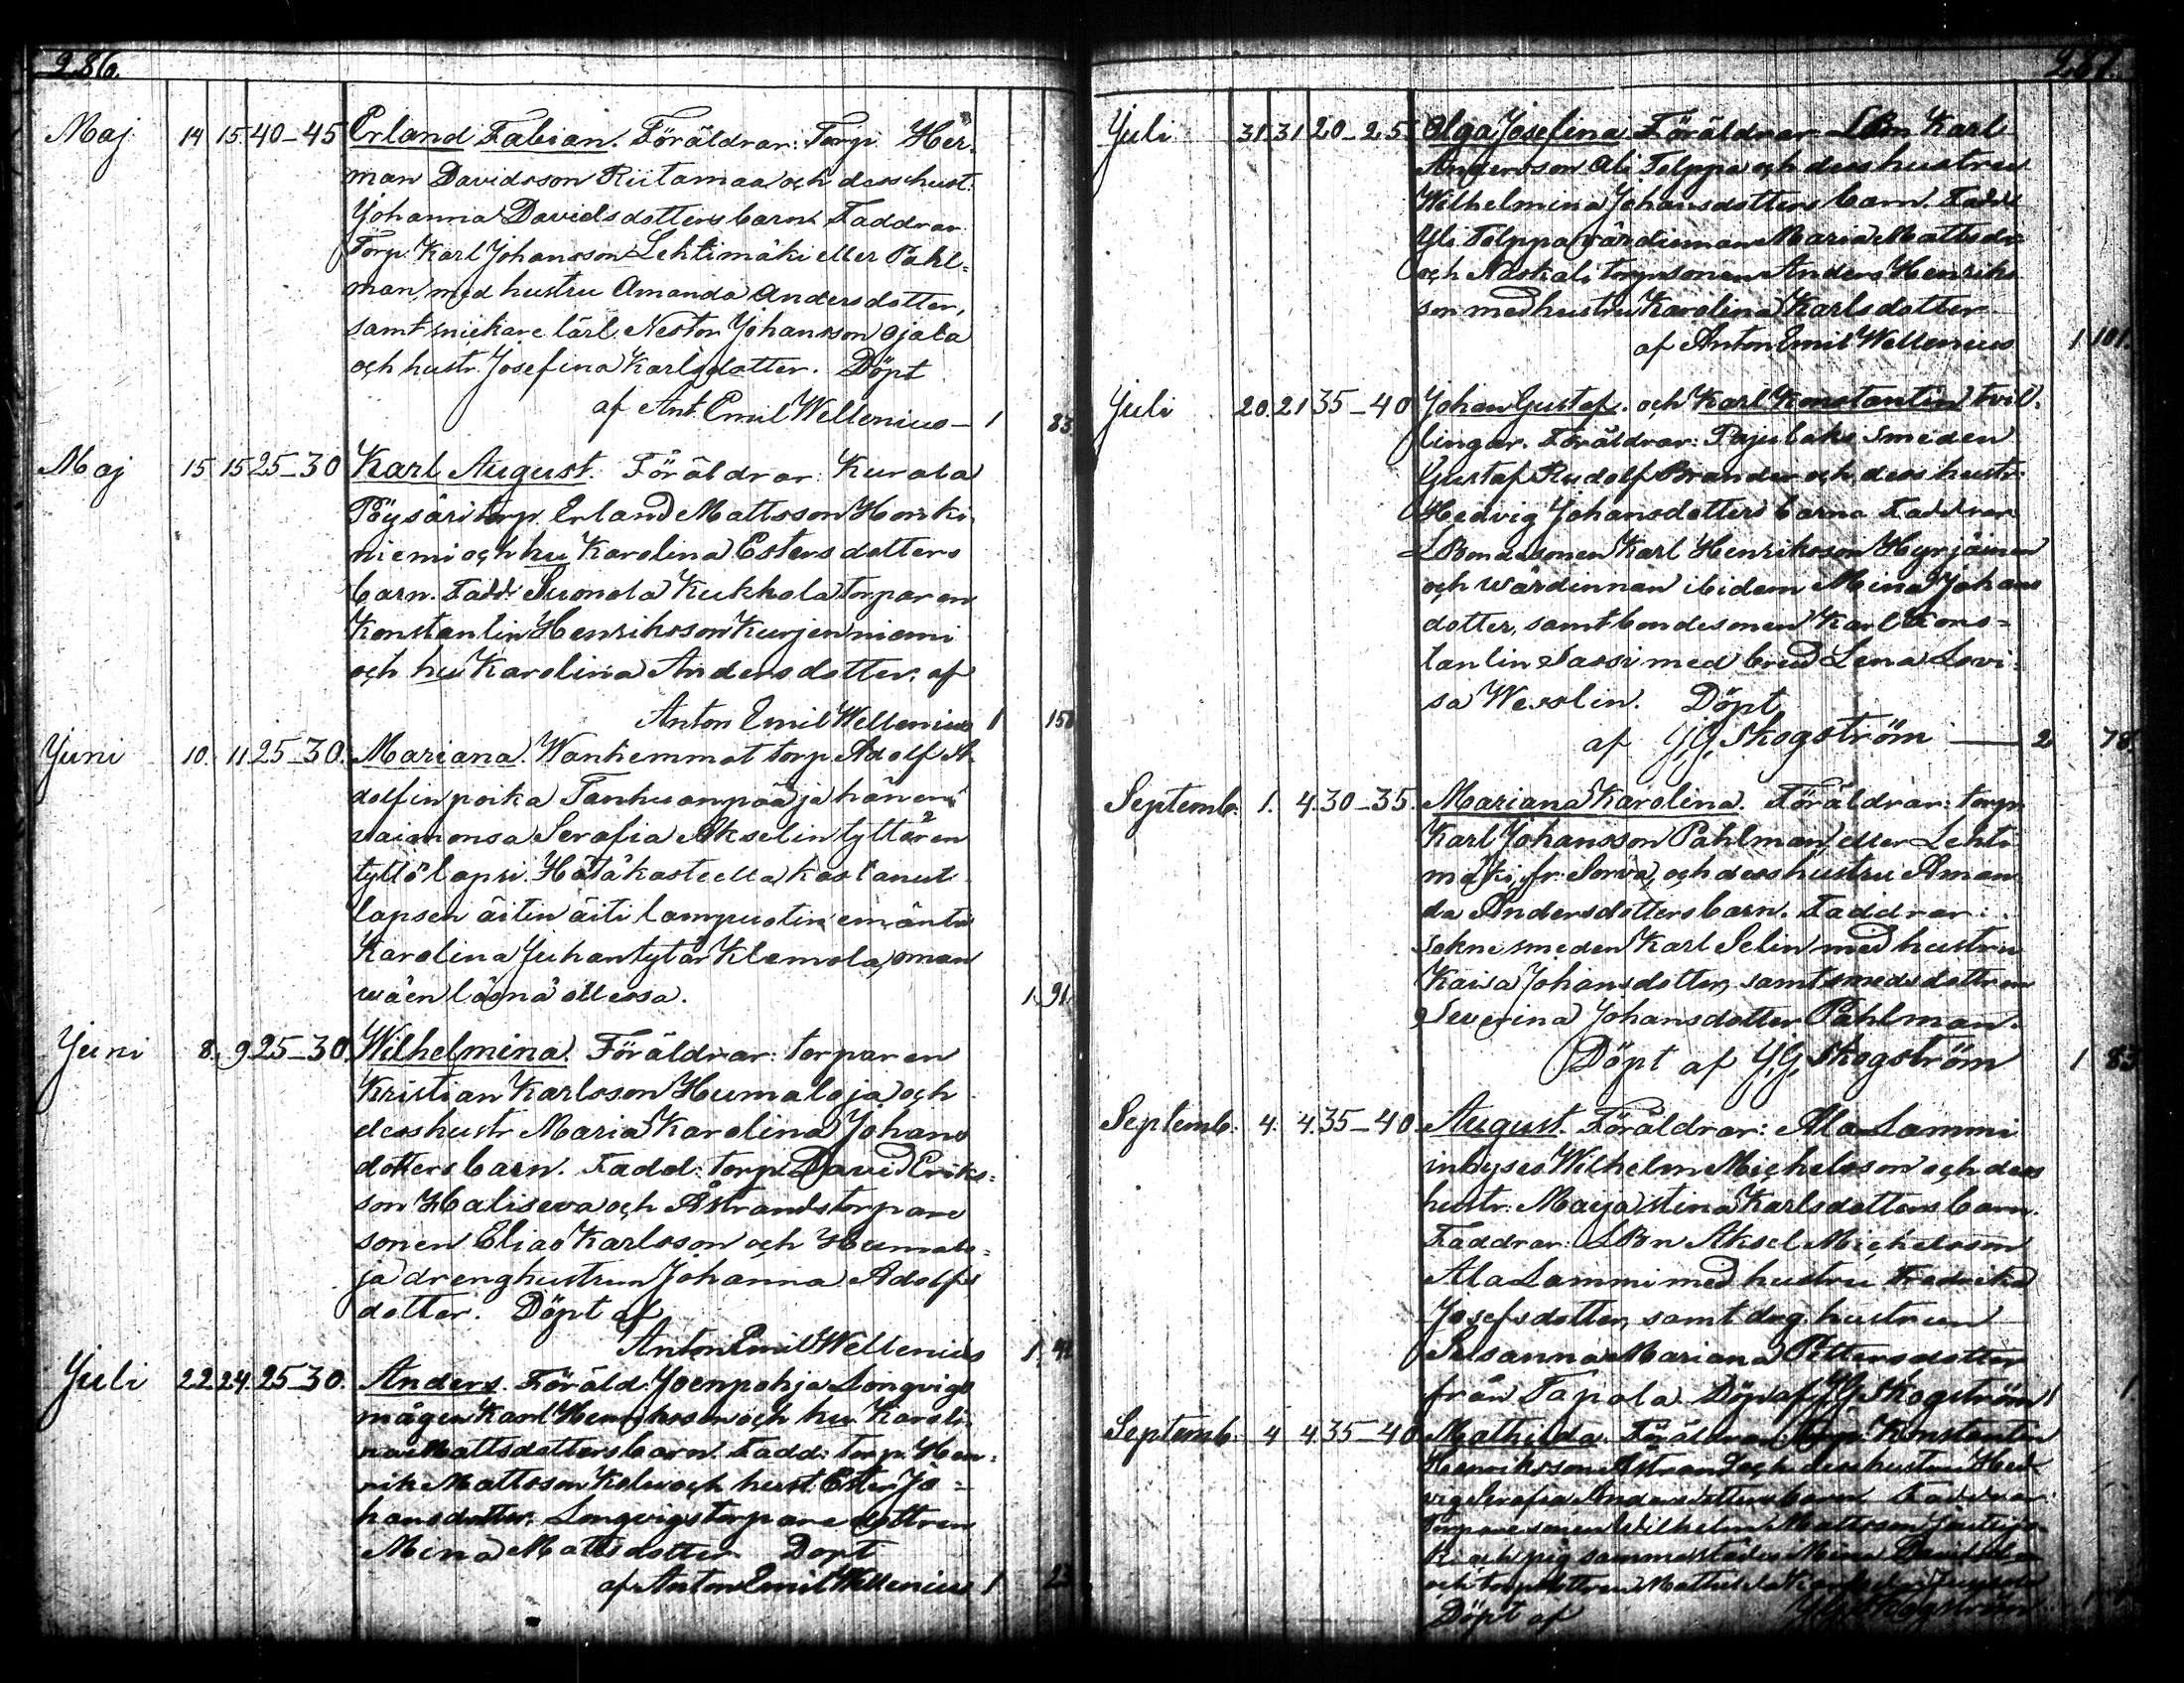 286.
Maj 14 15. 40–45 Erland Fabian. Föräldrar: Torp. Her-
man Davidsson Riitamaa och dess hust.
Johanna Davidsdotters barn. Faddrar
Torp. Karl Johansson Lehtimäki eller Pahl-
man, med hustru Amanda Andersdotter,
samt snickare lärl. Nestor Johansson Ojala
och hustr. Josefina Karlsdotter. Döpt
af Ant. Emil Wellenius – 1 83
Maj 15 15 25–30 Karl August. Föräldrar: Kurala
Pöysäri torp. Erland Mattsson Honki-
niemi och hu Karolina Estersdotters
barn. Fadd: Suomela Kukkola torparen
Konstantin Henriksson Kurjenniemi
och hu Karolina Andersdotter. af
Anton Emil Wellenius 1 158
Juni 10. 11 25–30. Mariana. Wanhemmat torp Adolf A-
dolfin poika Tanhuanpää ja hänen
vaimonsa Serafia Akselin tyttären
tyttö lapsi. Hätäkasteella kastanut
lapsen äitin äiti lampuotin emäntä
Karolina Juhantytär Klemola, oman
wäen läsnä ollessa. 1. 91.
Juni 8. 9. 25–30. Wilhelmina. Föräldrar: torparen
Kristian Karlsson Humaloja och
dess hustr Maria Karolina Johans
dotters barn. Fadd: torp. David Eriks-
son Haliseva och Åstrands torpare
sonen Elias Karlsson och Humalo-
ja drenghustrun Johanna Adolfs
dotter. Döpt af
Anton Emil Wellenius 1.
Juli 22. 24. 25–30. Anders. Föräld. Joenpohja Longvigs
mågen Karl Henriksson och hu Karoli-
na Mattsdotters barn. Fadd: torp. Hen-
rik Mattsson och hust. Ester Jo-
hansdotter, Longvigs torpare dottren
Mina Mattsdotter Döpt
af Anton Emil Wellenius 1 23
287.
Juli 31. 31 20–25 Olga Josefina Föräldrar LBn Karl
Andersson Ali Tolppa och dess hustru
Wilhelmina Johansdotters barn. Fadd:
Yli Tolppa värdinnan Maria Mattsdr
och torparsonen Anders Henriks
son med hustru Karolina Karlsdotter
af Anton Emil Wellenius 1 101.
Juli 20. 21 35–40 Johan Gustaf. och Karl Konstantin tvil-
lingar. Föräldrar: Pajulaks smeden
Gustaf Rudolf Brander och dess hustr.
Hedvig Johansdotters barna Faddrar
LBondsonen Karl Henriksson Hyrjäinen
och wärdinnan ibidem Mina Johans
dotter, samt bondesonen Karl Kons-
tantin Sassi med brud Lena Lovi-
sa Weslin. Döpt
af J.G. Skogström – 2 78.
Septemb. 1. 4. 30–35. Mariana Karolina. Föräldrar: torpn
Karl Johansson Pahlman, eller Lehti
mäki, fr. Sorva, och dess hustru Aman
da Andersdotters barn. Faddrar:
sokne smeden Karl Selin med hustru
Kaisa Johansdotter, samt smedsdottren
Severina Johansdotter Pahlman.
Döpt af J.G. Skogström 1 83
Septemb. 4. 4. 35–40 August. Föräldrar: Ala Lammi
inhyses Wilhelm Michelsson och dess
hustr. Maija Stina Karlsdotters barn.
Faddrar: LBn Aksel Michelsson
Ala Lammi med hustru Fredrika
Josefsdotter, samt dag. hustrun
Susanna Mariana Pettersdotter
från Tapola. Döpt af J.G. Skogström 1 1
Septemb. 4 4. 35–40 Mathilda. Föräldrar Torp. Konstantin
Henriksson Åstrand och dess hustru Hed-
vig Serafia Andersdotters barn Faddrar:
Torpare sonen Wilhelm Mattsson
och pig. sammastädes Mina
och torp. dottren Mathilda
Döpt af J.G. Skogström